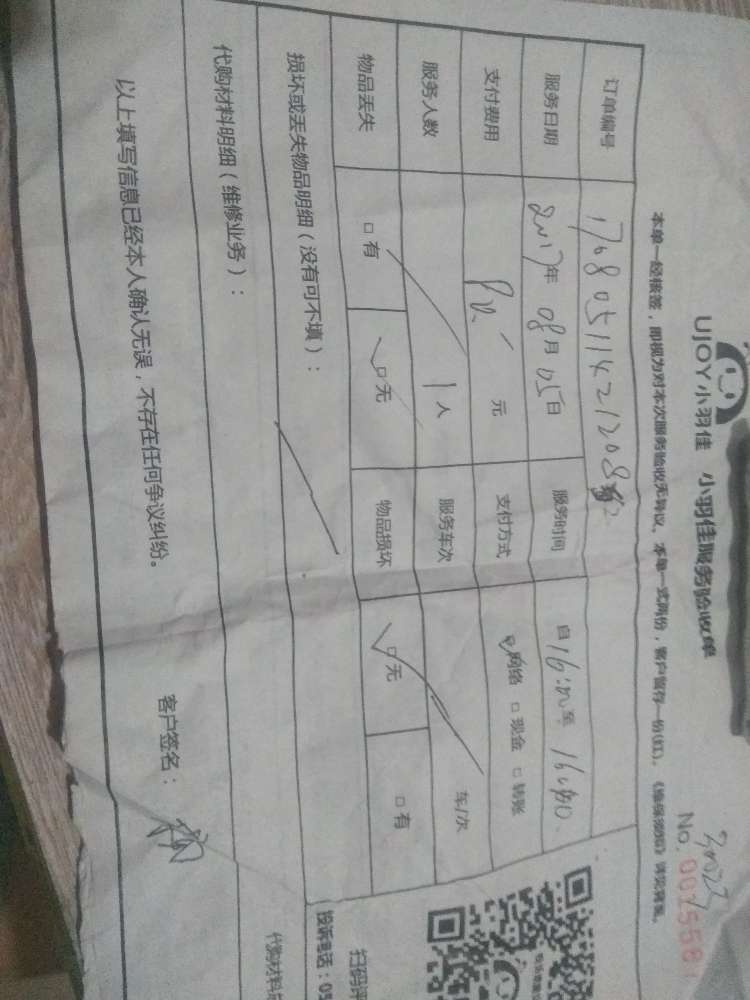 UJOY小羽佳 小羽佳服务验收单
No. 001558
本单一经核签，即视为对本次服务验收无异议。本单一式两份，客户留存一份(红)。
订单编号
服务日期 2017年 08月 05日 服务时间 自 16:
支付费用 元 支付方式 网络 □ 现金 □ 转账
服务人数 1人 服务车次 车/次
物品丢失 □ 有 □ 无 物品损坏 □ 无 □ 有
损坏或丢失物品明细（没有可不填）：
代购材料明细（维修业务）：
代购材料
以上填写信息已经本人确认无误，不存在任何争议纠纷。
客户签名：
扫码评
投诉电话：05